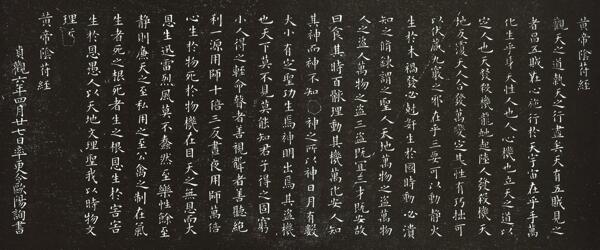 黄帝陰符經
觀天之道執天之行盡矣天有五賊見之
者昌五賊在心施行於天宇宙在乎手萬
化生乎身天性人也人心機也立天之道以
定人也天發殺機龍蛇起陸人發殺機天
地反覆天人合發萬變定基性有巧拙可
以伏藏九竅之邪在乎三要可以動靜火
生於木禍發必剋奸生於國時動必潰
知之脩練謂之聖人天地萬物之盜萬物
人之盜人萬物之盜三盜既宜三才既安故
曰食其時百骸理動其機萬化安人知
其神而神不知 神之所以神日月有數
大小有定聖功生焉神明出焉其盜機
也天下莫不見莫能知君子得之固躬
小人得之輕命瞽者善聽聾者善視絕
利一源用師十倍三反晝夜用師萬倍
心生於物死於物機在目天之無恩而大
恩生迅雷烈風莫不蠢然至樂性餘至
靜則廉天之至私用之至公禽之制在氣
生者死之根死者生之根恩生於害害
生於恩愚人以天地文理聖我以時物文
理
黄帝陰符經
貞觀六年四月廿七日率更令歐陽詢書